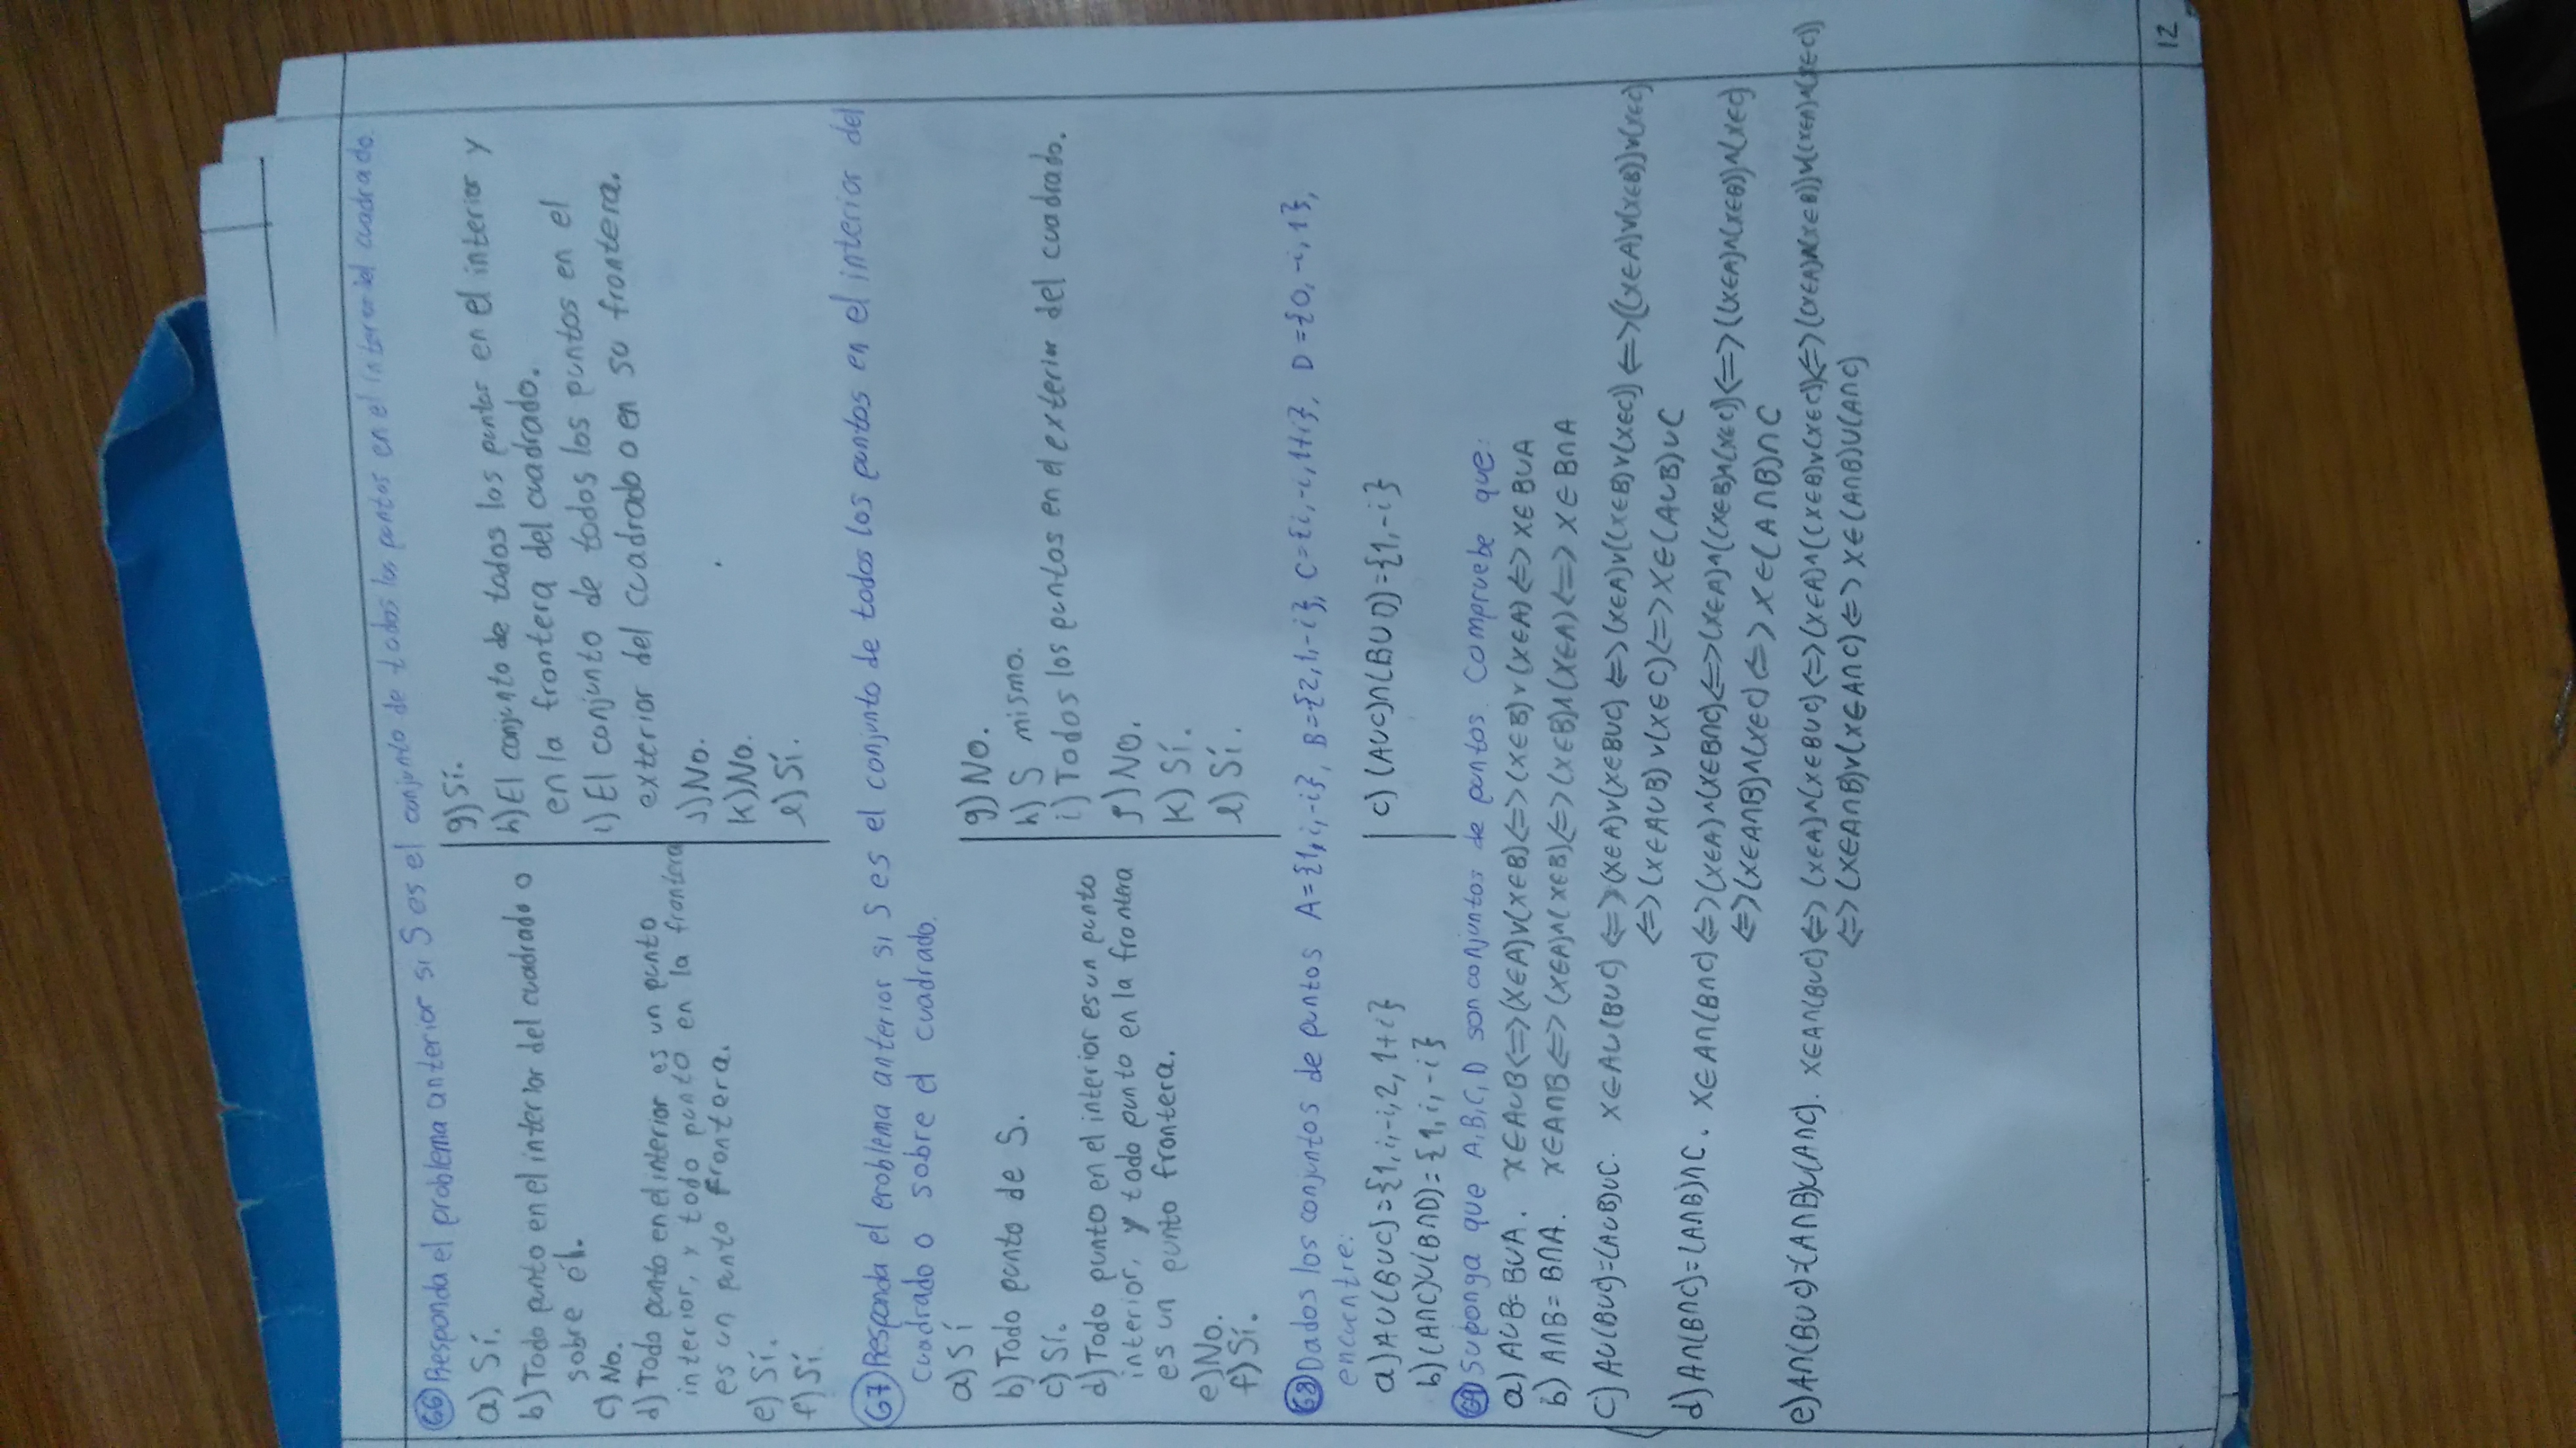 66) Responda el problema anterior si S es el conjunto de todos los puntos en el interior del cuadrado.
a) Sí.
b) Todo punto en el interior del cuadrado o
sobre él.
c) No.
d) Todo punto en el interior es un punto
interior, y todo punto en la frontera
es un punto frontera.
e) Sí.
f) Sí.
g) Sí.
h) El conjunto de todos los puntos en el interior y
en la frontera del cuadrado.
i) El conjunto de todos los puntos en el
exterior del cuadrado o en su frontera.
j) No.
k) No.
l) Sí.
67) Responda el problema anterior si S es el conjunto de todos los puntos en el interior del
cuadrado o sobre el cuadrado.
a) Sí
b) Todo punto de S.
c) Sí.
d) Todo punto en el interior es un punto
interior, y todo punto en la frontera
es un punto frontera.
e) No.
f) Sí.
g) No.
h) S mismo.
i) Todos los puntos en el exterior del cuadrado.
j) No.
k) Sí.
l) Sí.
68) Dados los conjuntos de puntos A={1,i,-i}, B={2,1,-i}, C={i,-i,1+i}, D={0,-i,1},
encuentre:
a) A∪(B∪C)={1,i,-i,2,1+i}
b) (A∩C)∪(B∩D)={1,i,-i}
c) (A∪C)∩(B∪D)={1,-i}
69) Suponga que A,B,C,D son conjuntos de puntos. Compruebe que:
a) A∪B=B∪A. x∈A∪B<=>(x∈A)∨(x∈B)<=>(x∈B)∨(x∈A)<=>x∈B∪A
b) A∩B=B∩A. x∈A∩B<=>(x∈A)∧(x∈B)<=>(x∈B)∧(x∈A)<=>x∈B∩A
c) A∪(B∪C)=(A∪B)∪C. x∈A∪(B∪C)<=>(x∈A)∨(x∈B∪C)<=>(x∈A)∨((x∈B)∨(x∈C))<=>((x∈A)∨(x∈B))∨(x∈C)
<=>(x∈A∪B)∨(x∈C)<=>x∈(A∪B)∪C
d) A∩(B∩C)=(A∩B)∩C. x∈A∩(B∩C)<=>(x∈A)∧(x∈B∩C)<=>(x∈A)∧((x∈B)∧(x∈C))<=>((x∈A)∧(x∈B))∧(x∈C)
<=>(x∈A∩B)∧(x∈C)<=>x∈(A∩B)∩C
e) A∩(B∪C)=(A∩B)∪(A∩C). x∈A∩(B∪C)<=>(x∈A)∧(x∈B∪C)<=>(x∈A)∧((x∈B)∨(x∈C))<=>((x∈A)∧(x∈B))∨((x∈A)∧(x∈C))
<=>(x∈A∩B)∨(x∈A∩C)<=>x∈(A∩B)∪(A∩C)
12